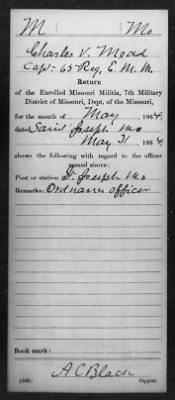 M Mo
Charles V. Mead
Capt 65 Reg, E. M. M.
Return
of the Enrolled Missouri Militia, 7th Military
District of Missouri, Dept. of the Missouri,
for the month of May, 1864.
dated Saint Joseph Mo
May 31, 1864
shows the following with regard to the officer
named above:
Post or station St. Joseph Mo
Remarks: Ordnance officer
Book mark:
A C Black
(646) Copyist.